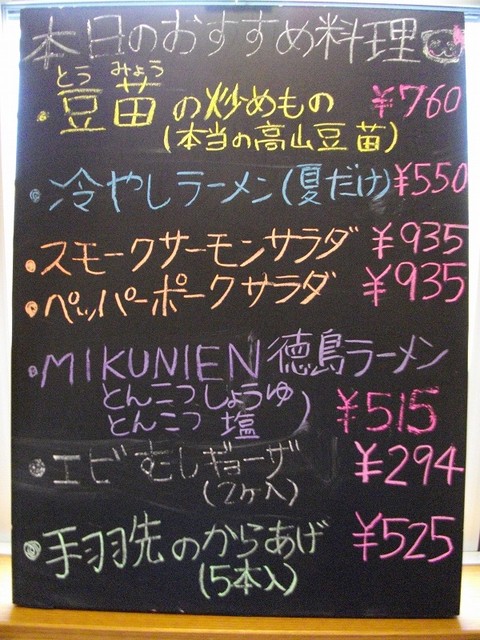 本日のおすすめ料理
とう みょう
・豆苗の炒めもの ¥760
(本当の高山豆苗)
・冷やしラーメン(夏だけ) ¥550
・スモークサーモンサラダ ¥935
・ペッパーポークサラダ ¥935
・MIKUNIEN 徳島ラーメン
とんこつしょうゆ
とんこつ 塩 ) ¥515
・エビむしギョーザ ¥294
(2ヶ入)
・手羽先のからあげ ¥525
(5本入)